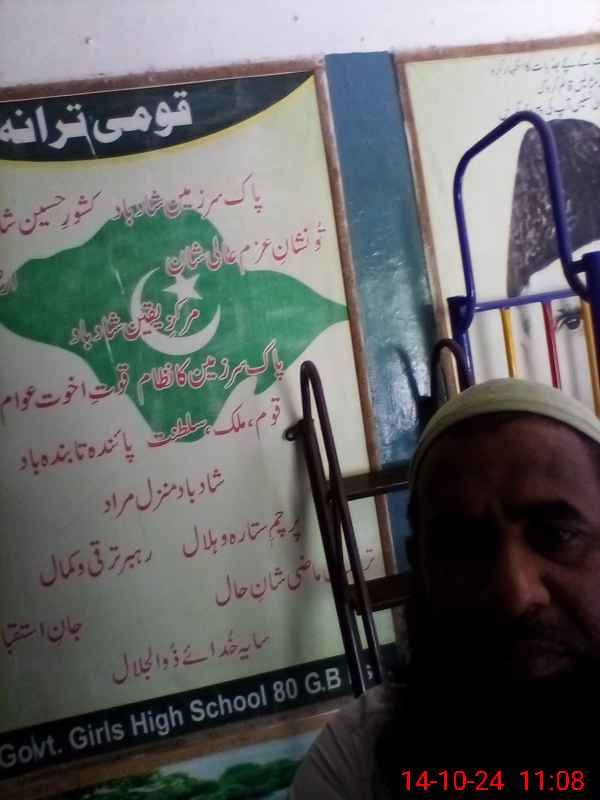 قومی ترانہ
پاک سرزمین شاد باد کشورِ حسین
تُو نشانِ عزمِ عالی شان
مرکزِ یقین شاد باد
پاک سرزمین کا نظام قوتِ اخوتِ عوام
قوم، ملک، سلطنت پائندہ تابندہ باد
شاد باد منزلِ مراد
پرچمِ ستارہ و ہلال رہبرِ ترقی و کمال
ماضی شانِ حال
جانِ
سایہ خُدائے ذُوالجلال
Govt. Girls High School 80 G.B
14-10-24 11:08